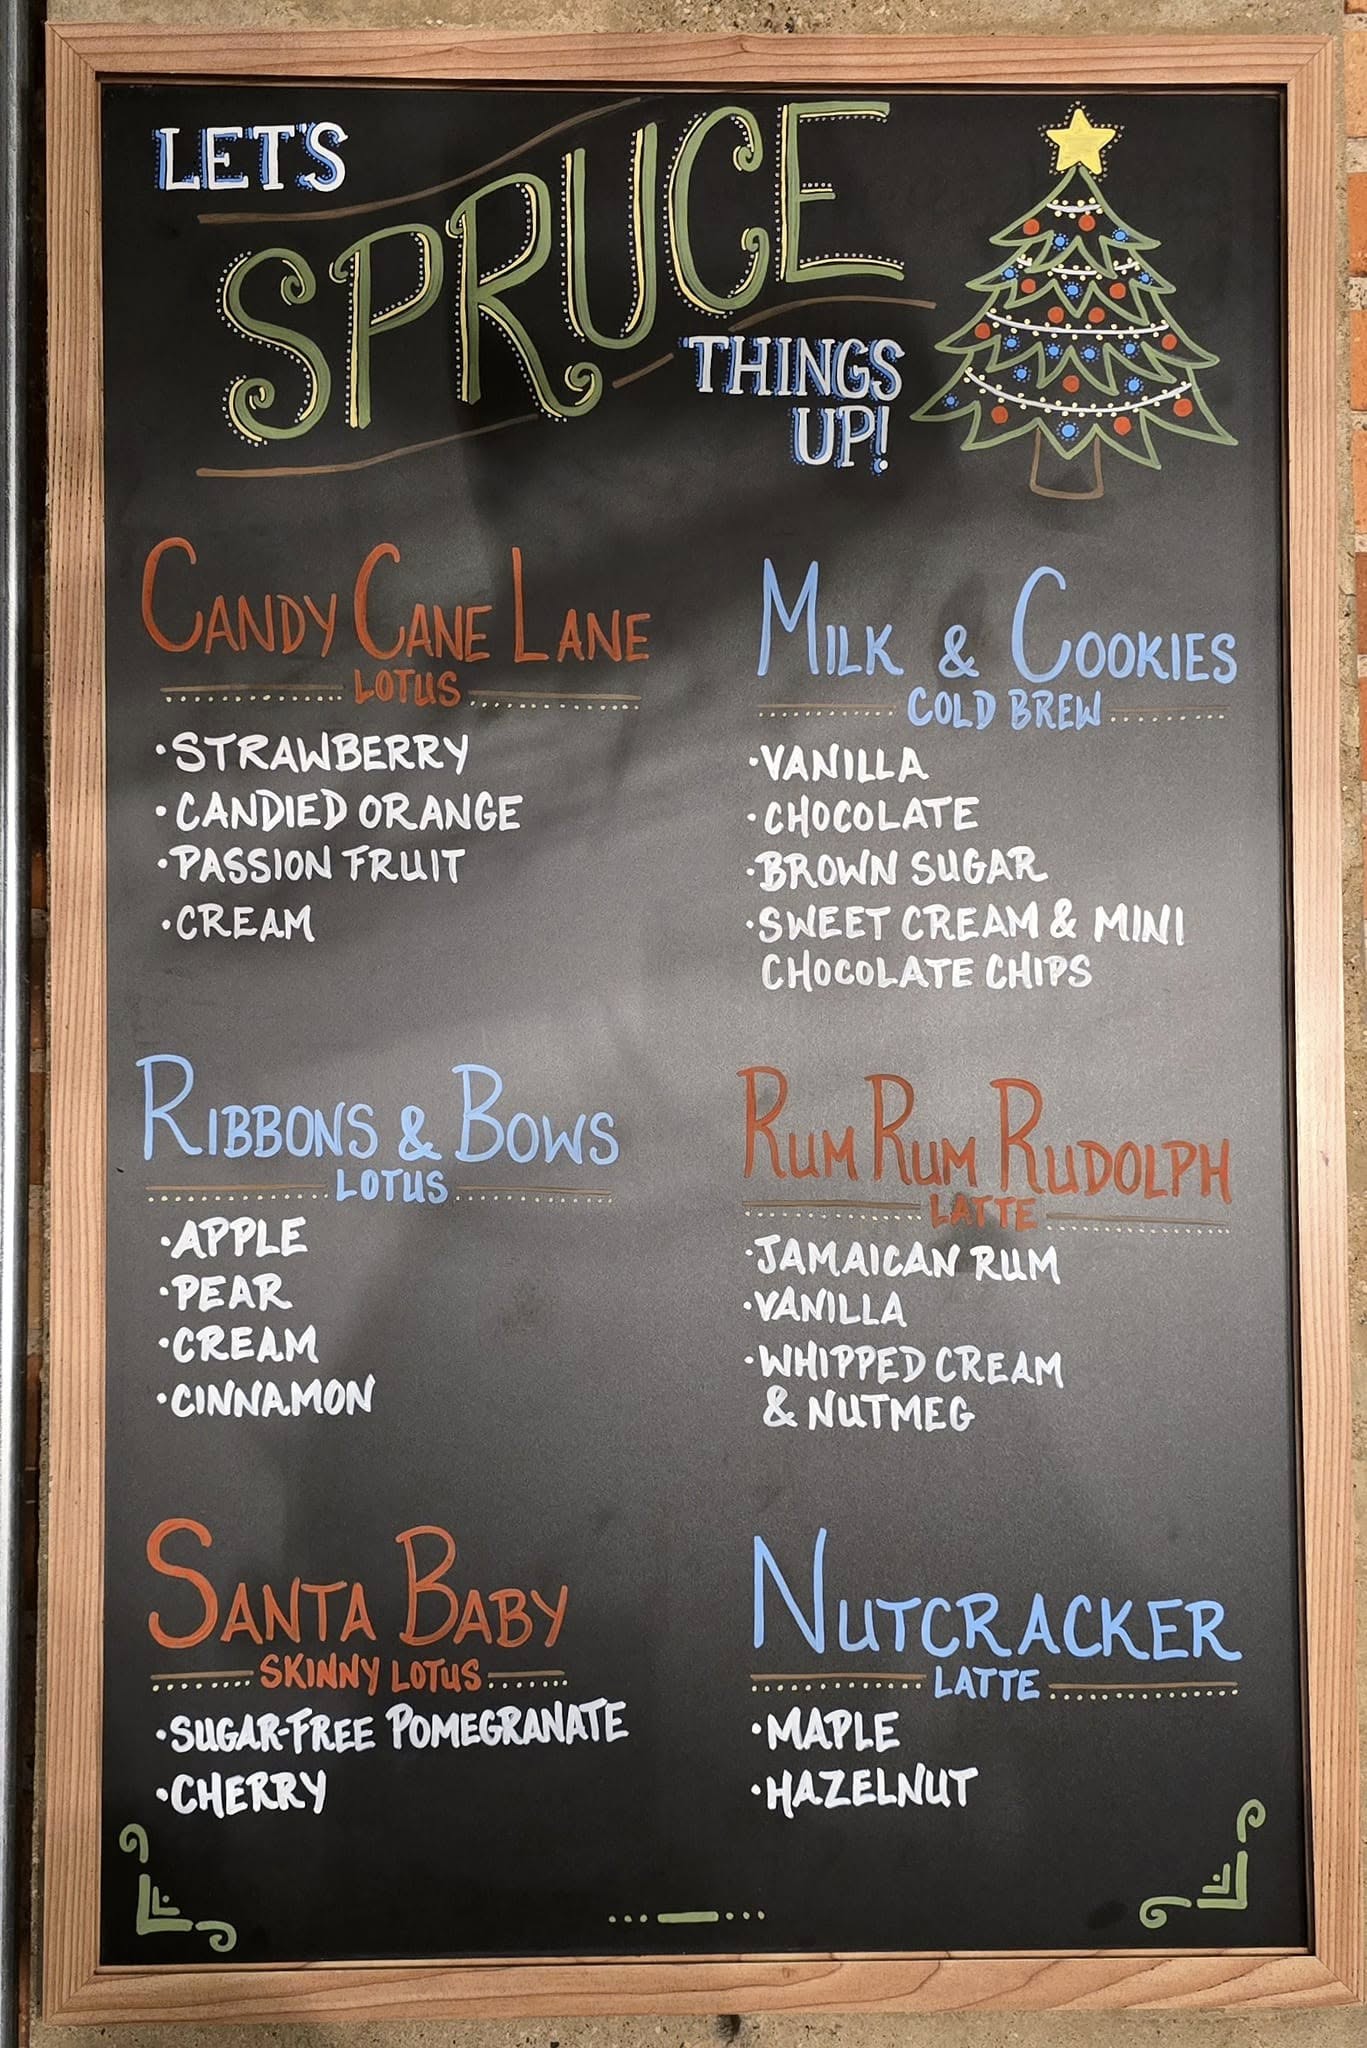 LET'S
SPRUCE
THINGS
UP!
CANDY CANE LANE
LOTUS
·STRAWBERRY
·CANDIED ORANGE
·PASSION FRUIT
·CREAM
MILK & COOKIES
COLD BREW
·VANILLA
·CHOCOLATE
·BROWN SUGAR
·SWEET CREAM & MINI
CHOCOLATE CHIPS
RIBBONS & BOWS
LOTUS
·APPLE
·PEAR
·CREAM
·CINNAMON
RUM RUM RUDOLPH
LATTE
·JAMAICAN RUM
·VANILLA
·WHIPPED CREAM
& NUTMEG
SANTA BABY
SKINNY LOTUS
·SUGAR-FREE POMEGRANATE
·CHERRY
NUTCRACKER
LATTE
·MAPLE
·HAZELNUT